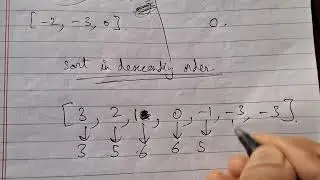 [-2, -3, 0] 0.
sort in descending order
[3, 2, 1, 0, -1, -3, -3]
3 5 6 6 5